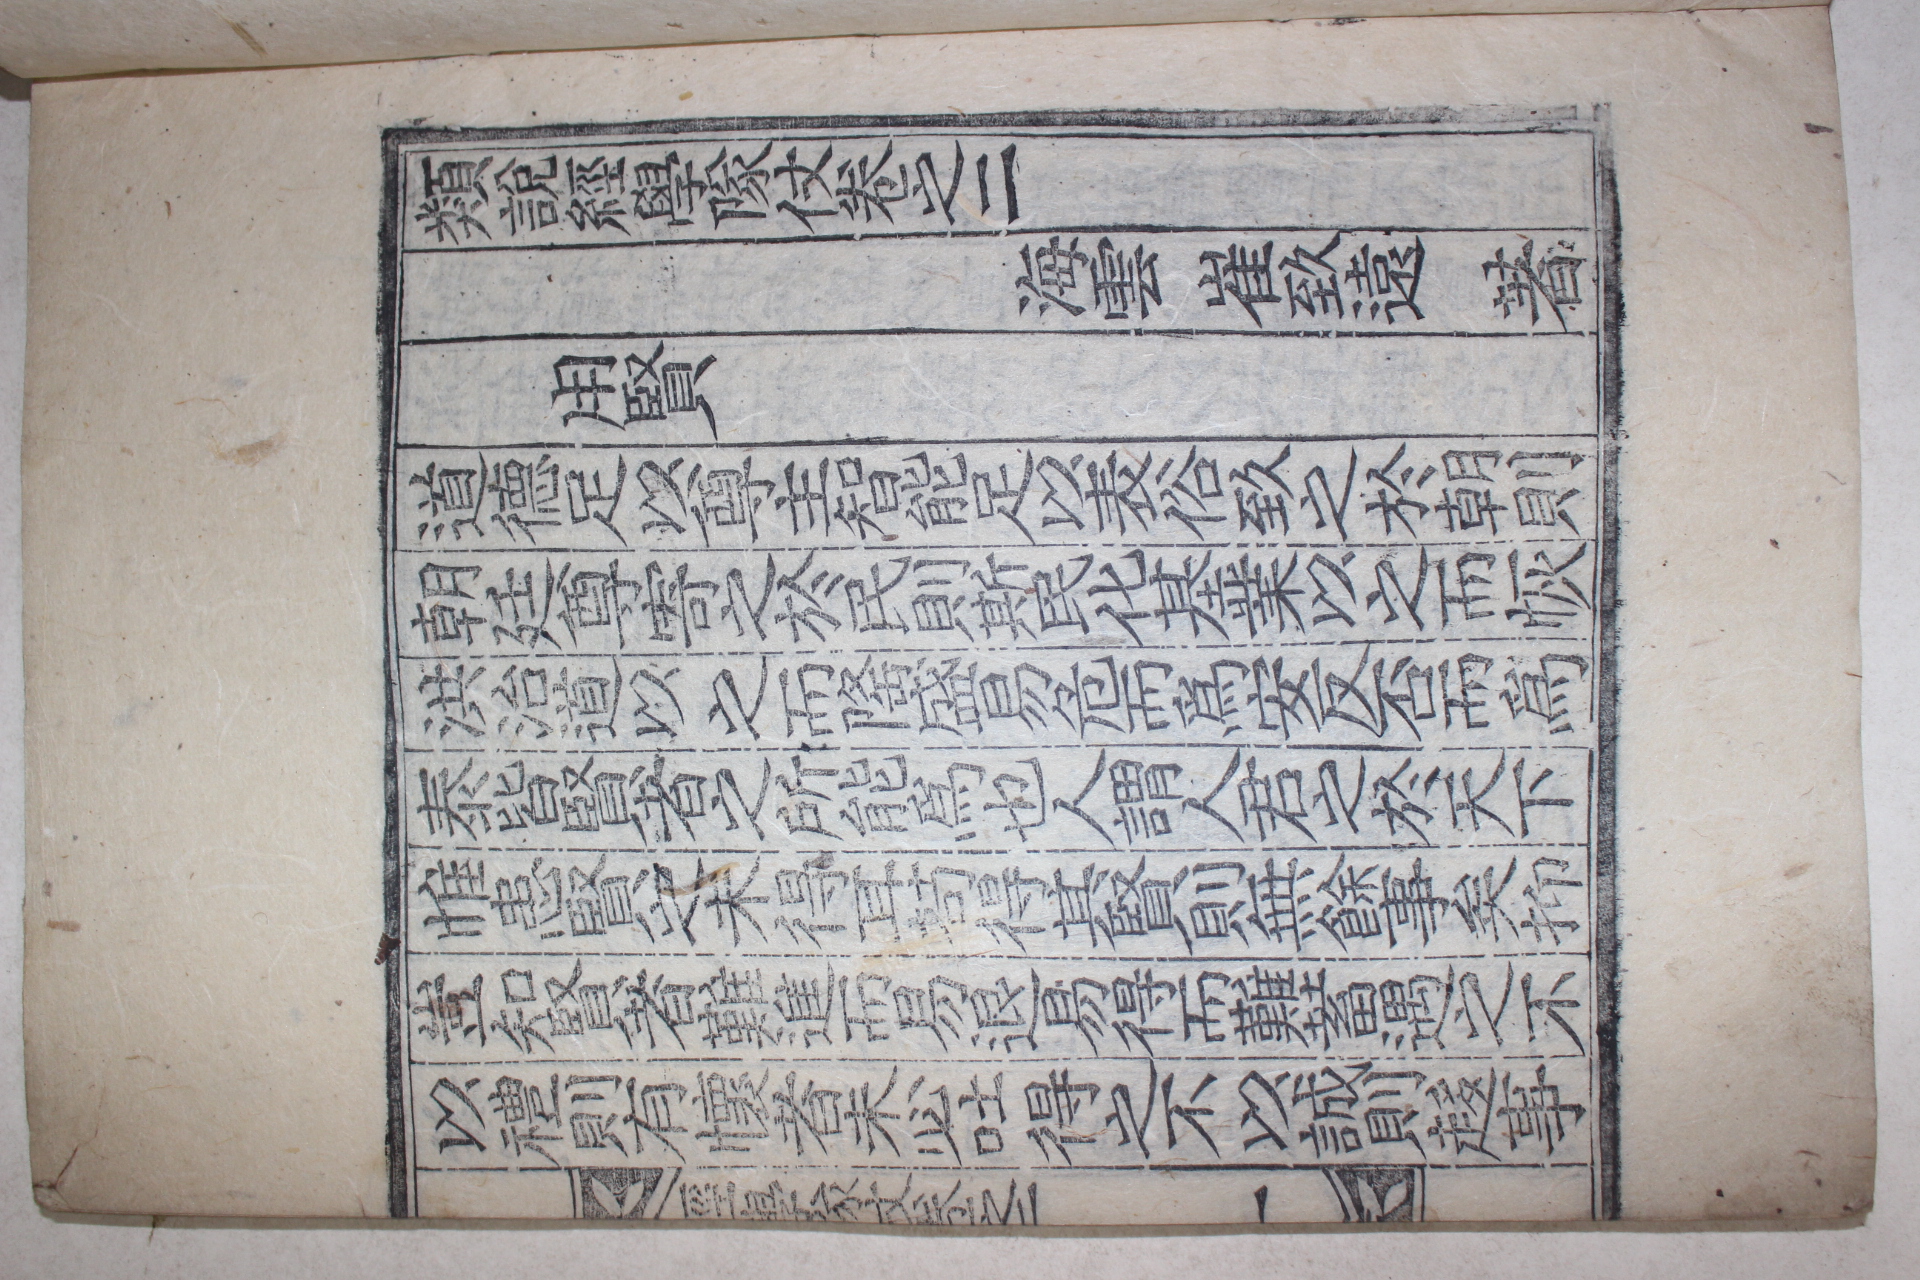 類說經學隊仗卷之二
海雲 崔致遠 著
用賢
道德足以尊主智能足以表俗致之於朝則
朝廷尊寄之於民則斯民化基業以之而恢
洪治道以之而隆盛易危而爲安反否而爲
泰皆賢者之所能爲也人謂人君之於天下
惟患賢之未得耳苟得其賢則無餘事矣抑
豈知賢者難進而易退易得而難蓄遇之不
以禮則有懷者未必吐得之不以誠則趍事